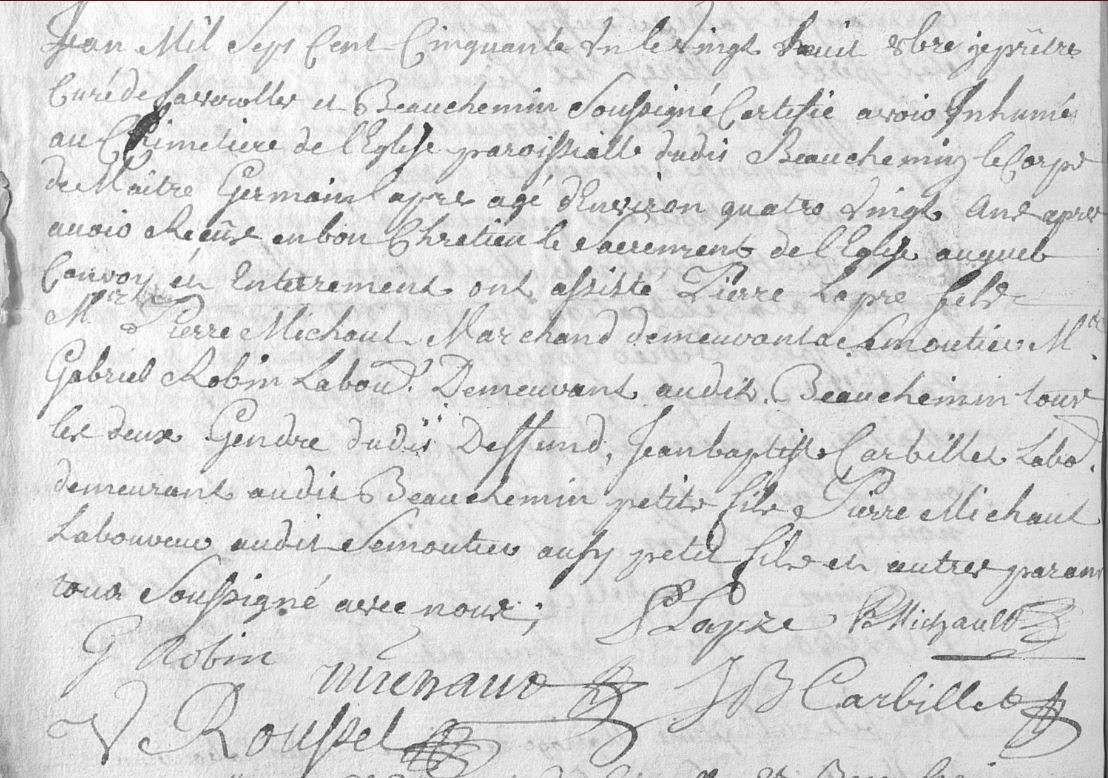 Lan Mil Sept Cent Cinquante Un le vingt huit 8bre je prêtre
Curé de faverolles et Beauchemin Soussigné Certifie avoir Inhumé
au Cimetiere de l'Eglise paroissialle dudit Beauchemin le Corps
de Maitre Germain lapre agé d'Environ quatre vingt Ans apres
avoir Receüs en bon Chretien le Sacrements de l'Eglise auquel
Convoy et Enterrement ont assisté Pierre Lapre fils
Pierre Michaut Marchand demeurant a Semoutier Mtre
Gabriel Robin Labour. Demeurant audit Beauchemin tous
les deux Gendre dudit Deffund, Jean baptiste Carbillet Labo.
demeurant audit Beauchemin petits fils Pierre Michaut
Laboureur audit Semoutier aussy petit fils et autres parans
tous Soussigné avec nous ;
P Lapre P Michault
G Robin
Michaut JB Carbillet
V Roussel